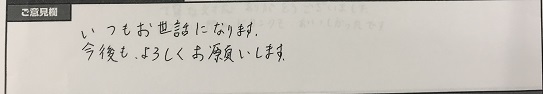 ご意見欄
いつもお世話になります.
今後も、よろしくお願いします.